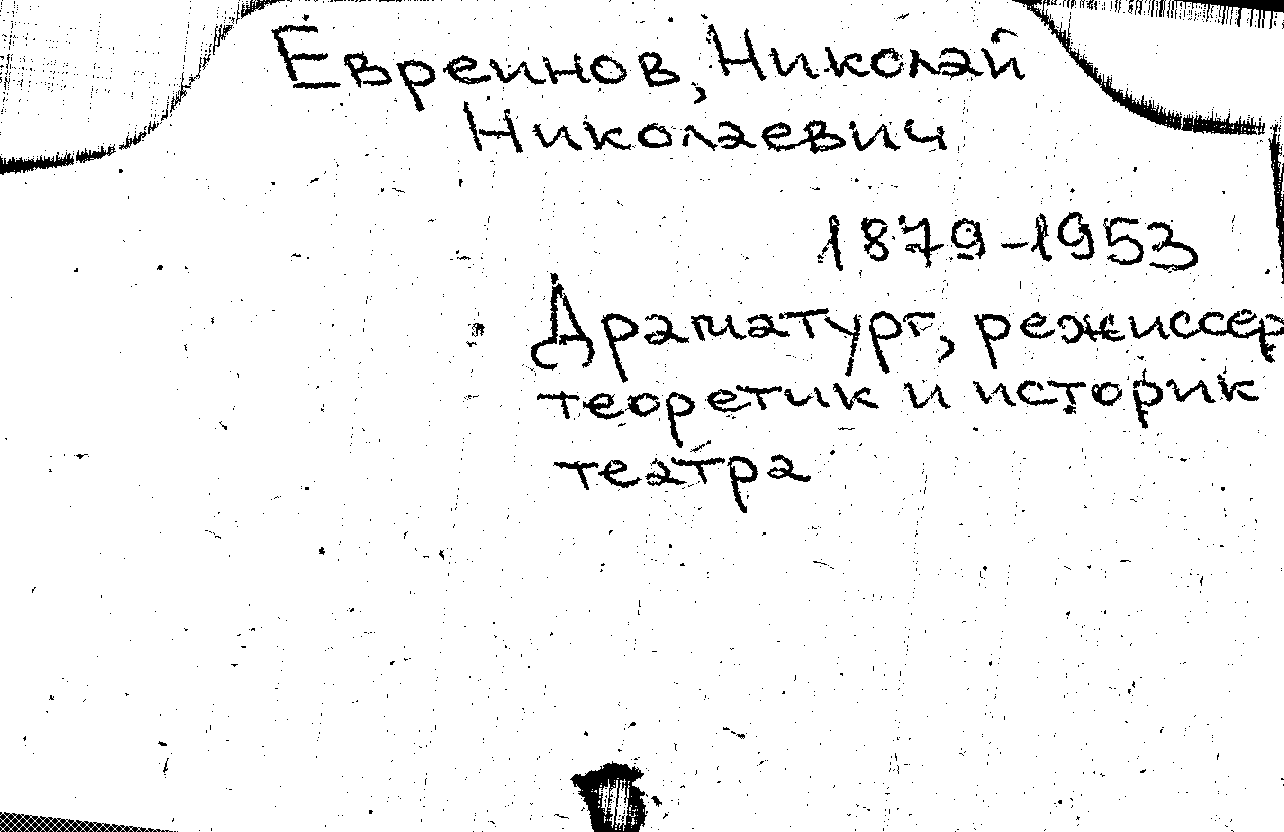 Евреинов, Николай
Николаевич
1879-1953
Драматург, режиссер
теоретик и историк
театра